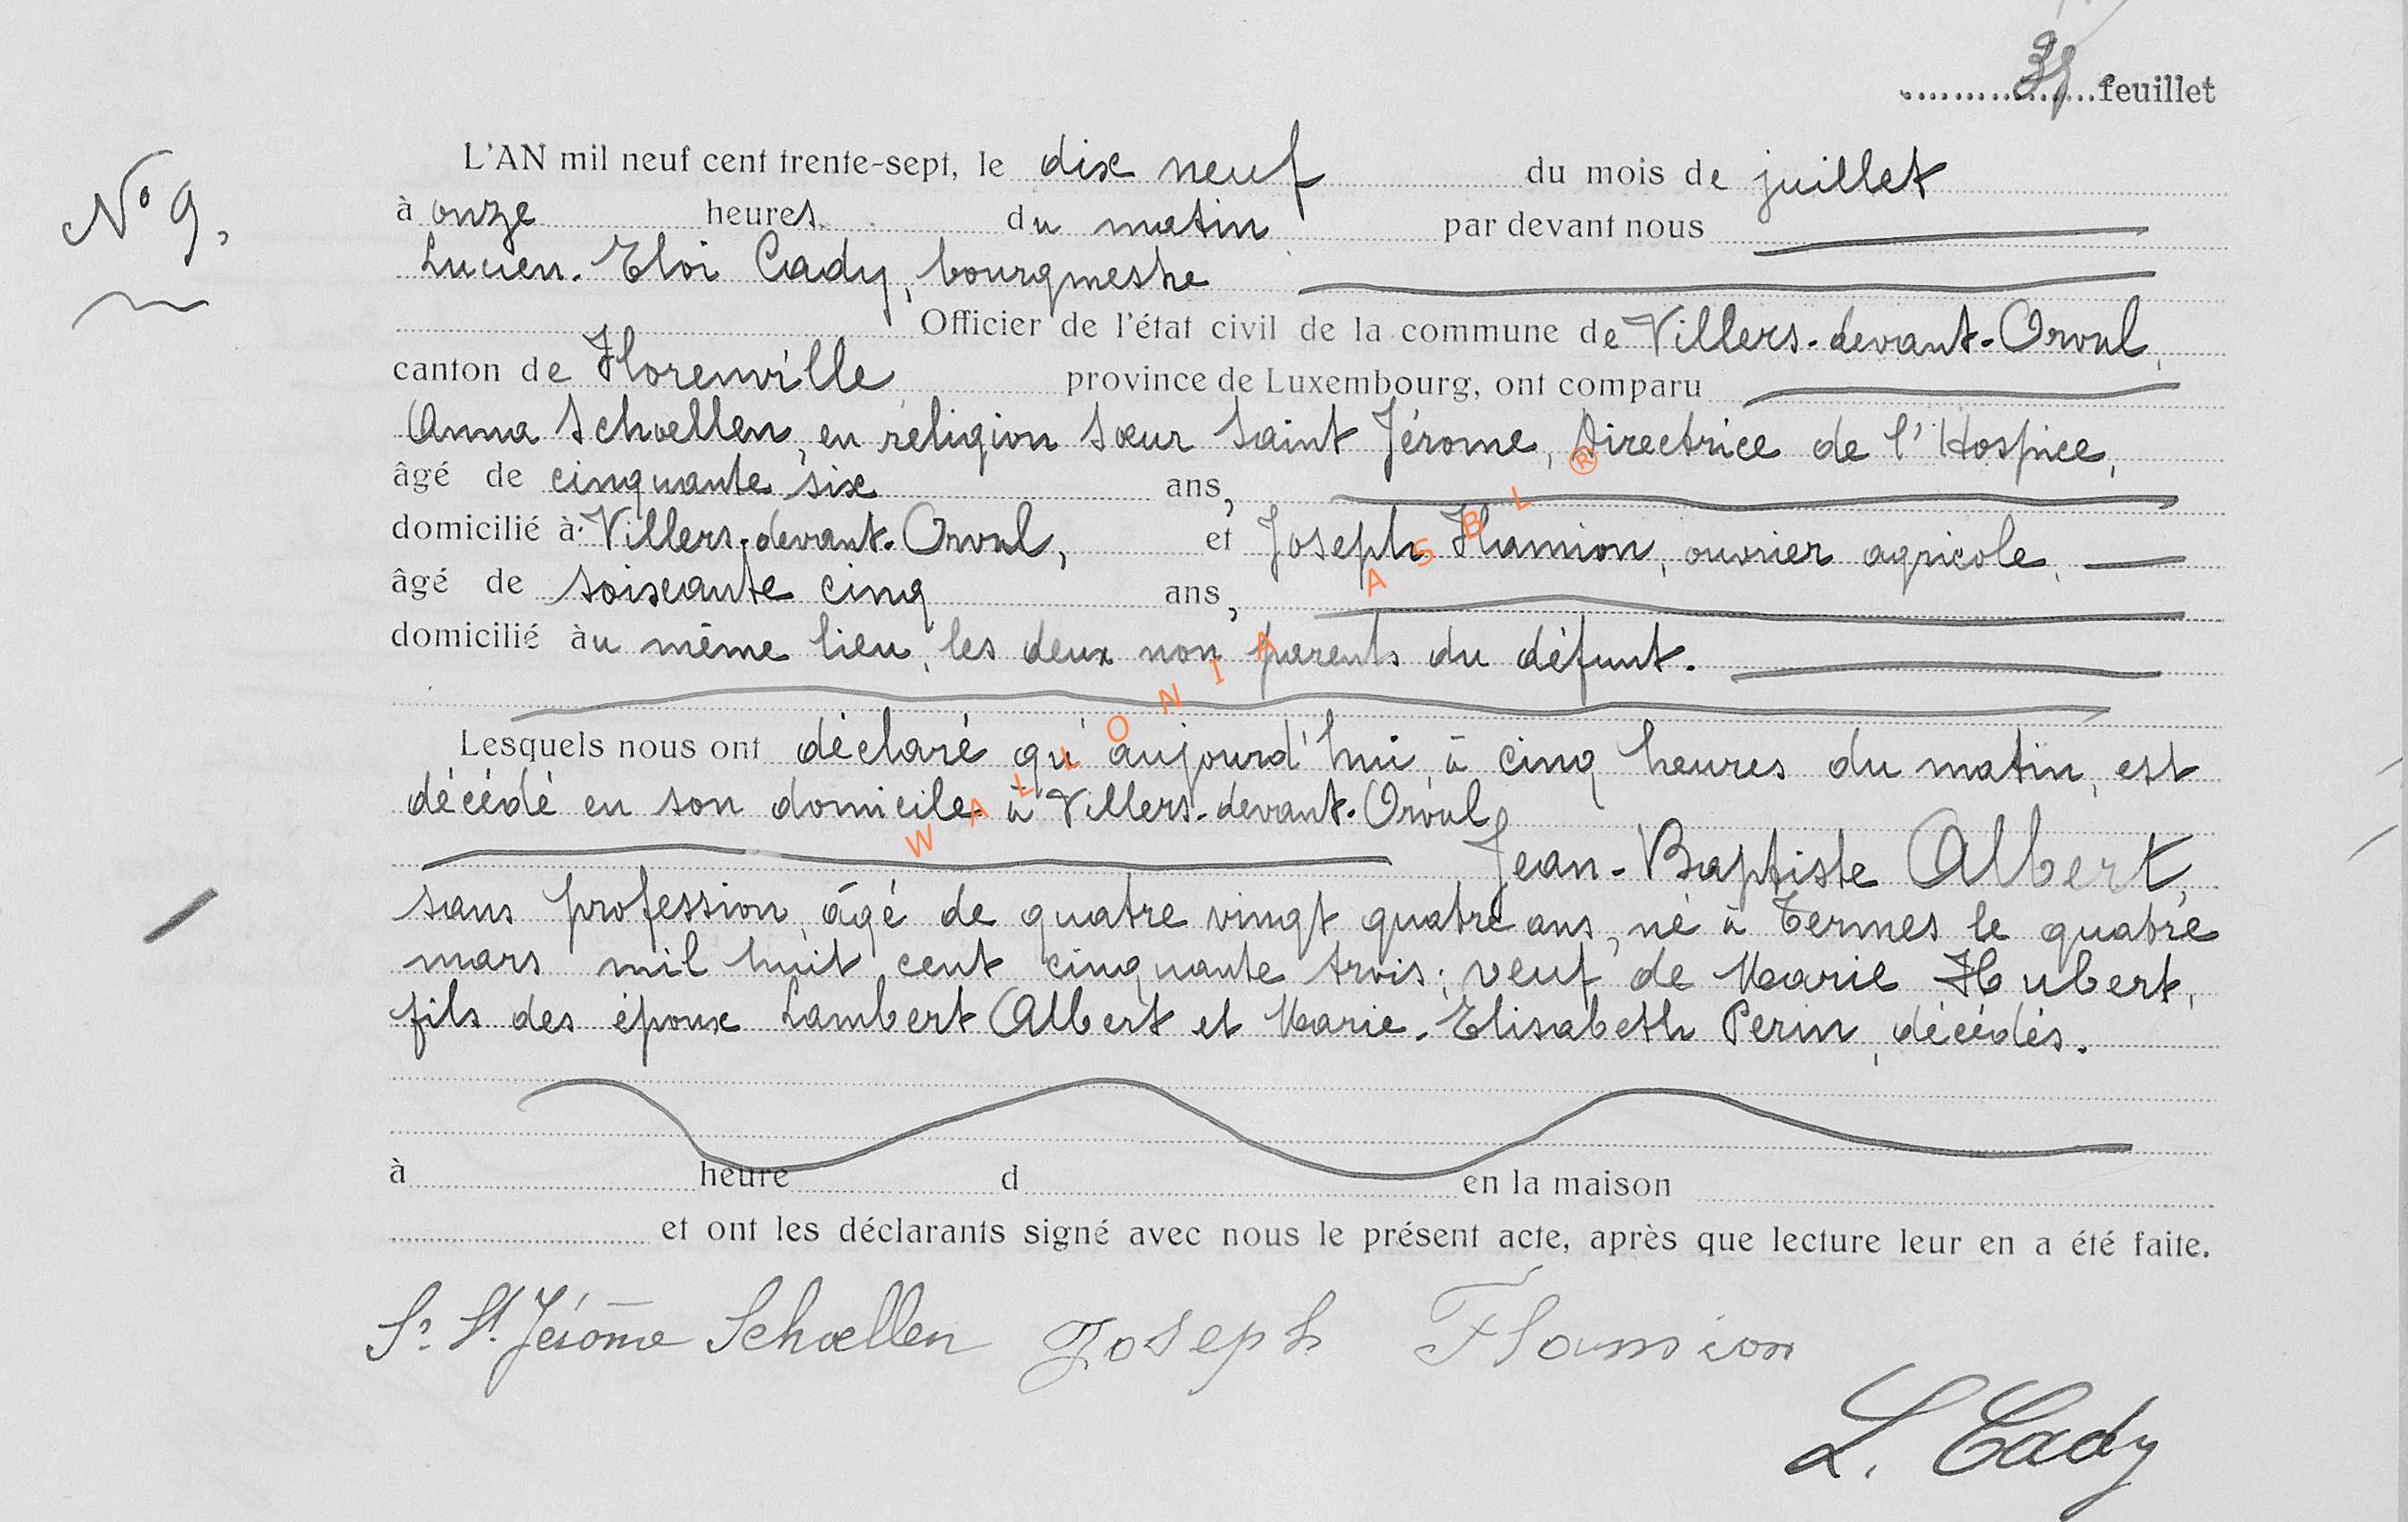 feuillet
L'AN mil neuf cent trente-sept, le dix neuf du mois de juillet
N° 9,
à onze heures du matin par devant nous
Lucien-Eloi Cady, bourgmestre
Officier de l'état civil de la commune de Villers-devant-Orval,
canton de Florenville, province de Luxembourg, ont comparu
Anna Schoellen, en religion sœur Saint Jérome, Directrice de l'Hospice,
âgé de cinquante six ans,
domicilié à Villers-devant-Orval, et Joseph Flamion, ouvrier agricole,
âgé de soixante cinq ans,
domicilié au même lieu, les deux non parents du défunt.
Lesquels nous ont déclaré qu'aujourd'hui, à cinq heures du matin, est
décédé en son domicile à Villers-devant-Orval,
Jean-Baptiste Albert,
sans profession, âgé de quatre vingt quatre ans, né à Termes le quatre
mars mil huit cent cinquante trois; veuf de Marie Hubert,
fils des époux Lambert Albert et Marie-Elisabeth Perin, décédés.
à heure d en la maison
et ont les déclarants signé avec nous le présent acte, après que lecture leur en a été faite.
Sr St Jérôme Schœllen Joseph Flamion
L. Cady
WALLONIA ASBL ®